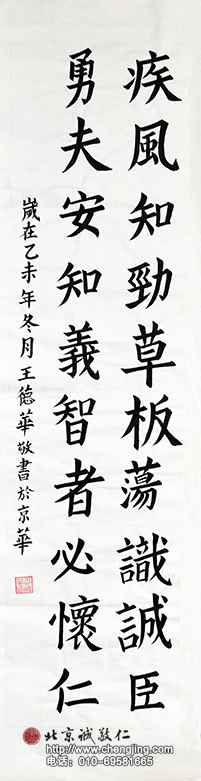 疾風知勁草板蕩識誠臣
勇夫安知義智者必懷仁
歲在乙未年冬月王德華敬書於京華
北京诚敬仁
http://www.chengjing.com
电话：010-69581665